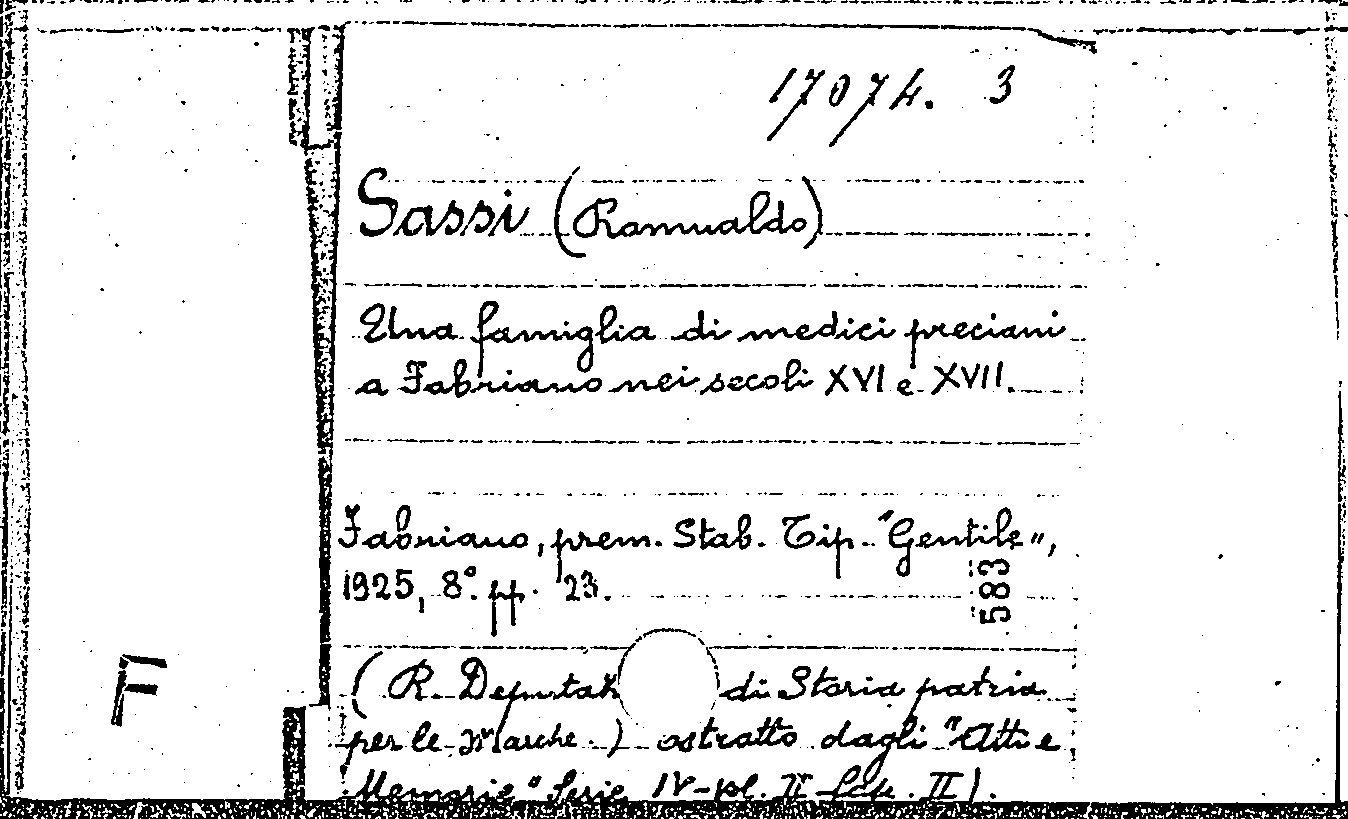 17074. 3
Sassi (Romualdo)
Una famiglia di medici preciani
a Fabriano nei secoli XVI e XVII.
Fabriano, prem. Stab. Tip. "Gentile",
1925, 8º. pp. 23.
583
F
(R. Deputaz di Storia patria
per le Marche.) estratto dagli "Atti e
Memorie" Serie IV - II II).